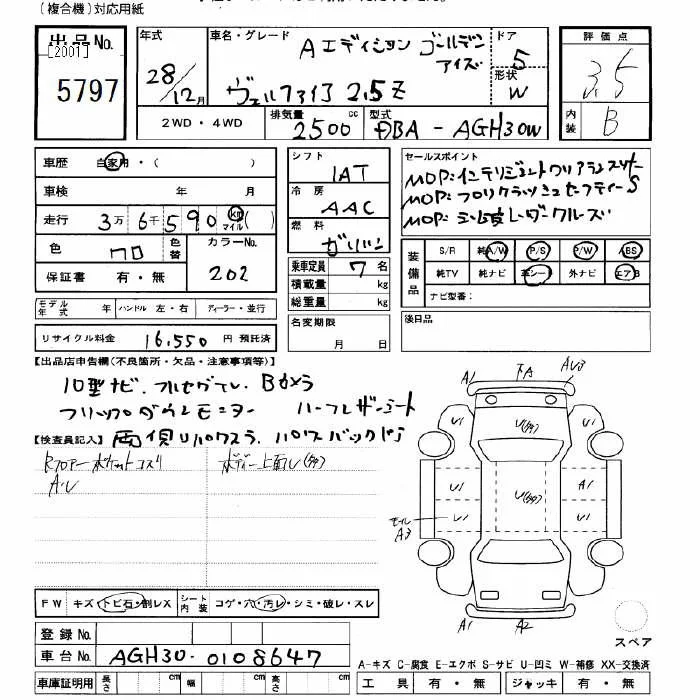 (複合機)対応用紙
出品No. [2001] 5797
年式 28/12月
車名・グレード Aエディション ゴールデンアイズ
ヴェルファイア 2.5Z
ドア 5
形状 W
評価点 3.5
内装 B
2WD・4WD
排気量 2500 cc
型式 DBA-AGH30W
車歴 自家用・( )
車検 年 月
走行 3万 6千 590 km マイル ( )
色 クロ 色替 カラーNo. 202
保証書 有・無
シフト IAT
冷房 AAC
燃料 ガソリン
乗車定員 7名
積載量 kg
総重量 kg
名変期限 月 日
セールスポイント
MOP:インテリジェントクリアランスソナー
MOP:プリクラッシュセーフティーS
MOP:ミリ波レーダークルーズ
装備品 S/R 純A/W P/S P/W ABS
純TV 純ナビ 革シート 外ナビ エアB
ナビ型番:
後日品
モデル年式 ハンドル 左・右 ディーラー・並行
リサイクル料金 16,550 円 預託済
【出品店申告欄(不良箇所・欠品・注意事項等)】
10型ナビ.フルセグTV.Bカメラ
フリップダウンモニター ハーフレザーシート
【検査員記入】 両側パワスラ.パワーバックドア
ポケットコスリ
A・U
ボディー上面U(多)
A1 下A AU3
U1 U(多) U1
U1 U(多) A1
モール A3 U1 U1
A1 A2
スペア
FW キズ・トビ石・割レX シート内装 コゲ・穴・汚レ・シミ・破レ・スレ
登録No.
車台No. AGH30-0108647
車庫証明用 長さ cm 幅 cm 高さ cm
A-キズ C-腐食 E-エクボ S-サビ U-凹ミ W-補修 XX-交換済
工具 有・無 ジャッキ 有・無